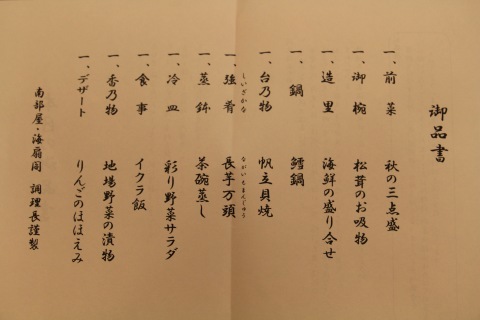 御品書
一、前菜 秋の三点盛
一、御椀 松茸のお吸物
一、造里 海鮮の盛り合せ
一、鍋 鱈鍋
一、台乃物 帆立貝焼
一、強肴 しいざかな 長芋万頭 ながいもまんじゅう
一、蒸鉢 茶碗蒸し
一、冷皿 彩り野菜サラダ
一、食事 イクラ飯
一、香乃物 地場野菜の漬物
一、デザート りんごのほほえみ
南部屋・海扇閣 調理長謹製